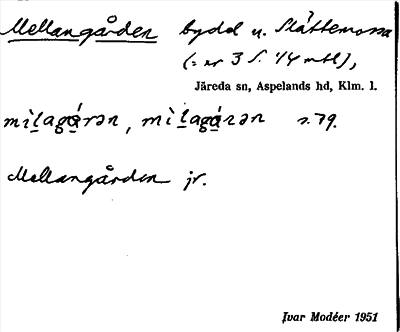 Mellangården bydel u. Slåttemossa
(= nr 3 S. 1/4 mtl),
Järeda sn, Aspelands hd, Klm. l.
mìlagá̀rən, mìlagá̀rən s. 79.
Mellangården jr.
Ivar Modéer 1951